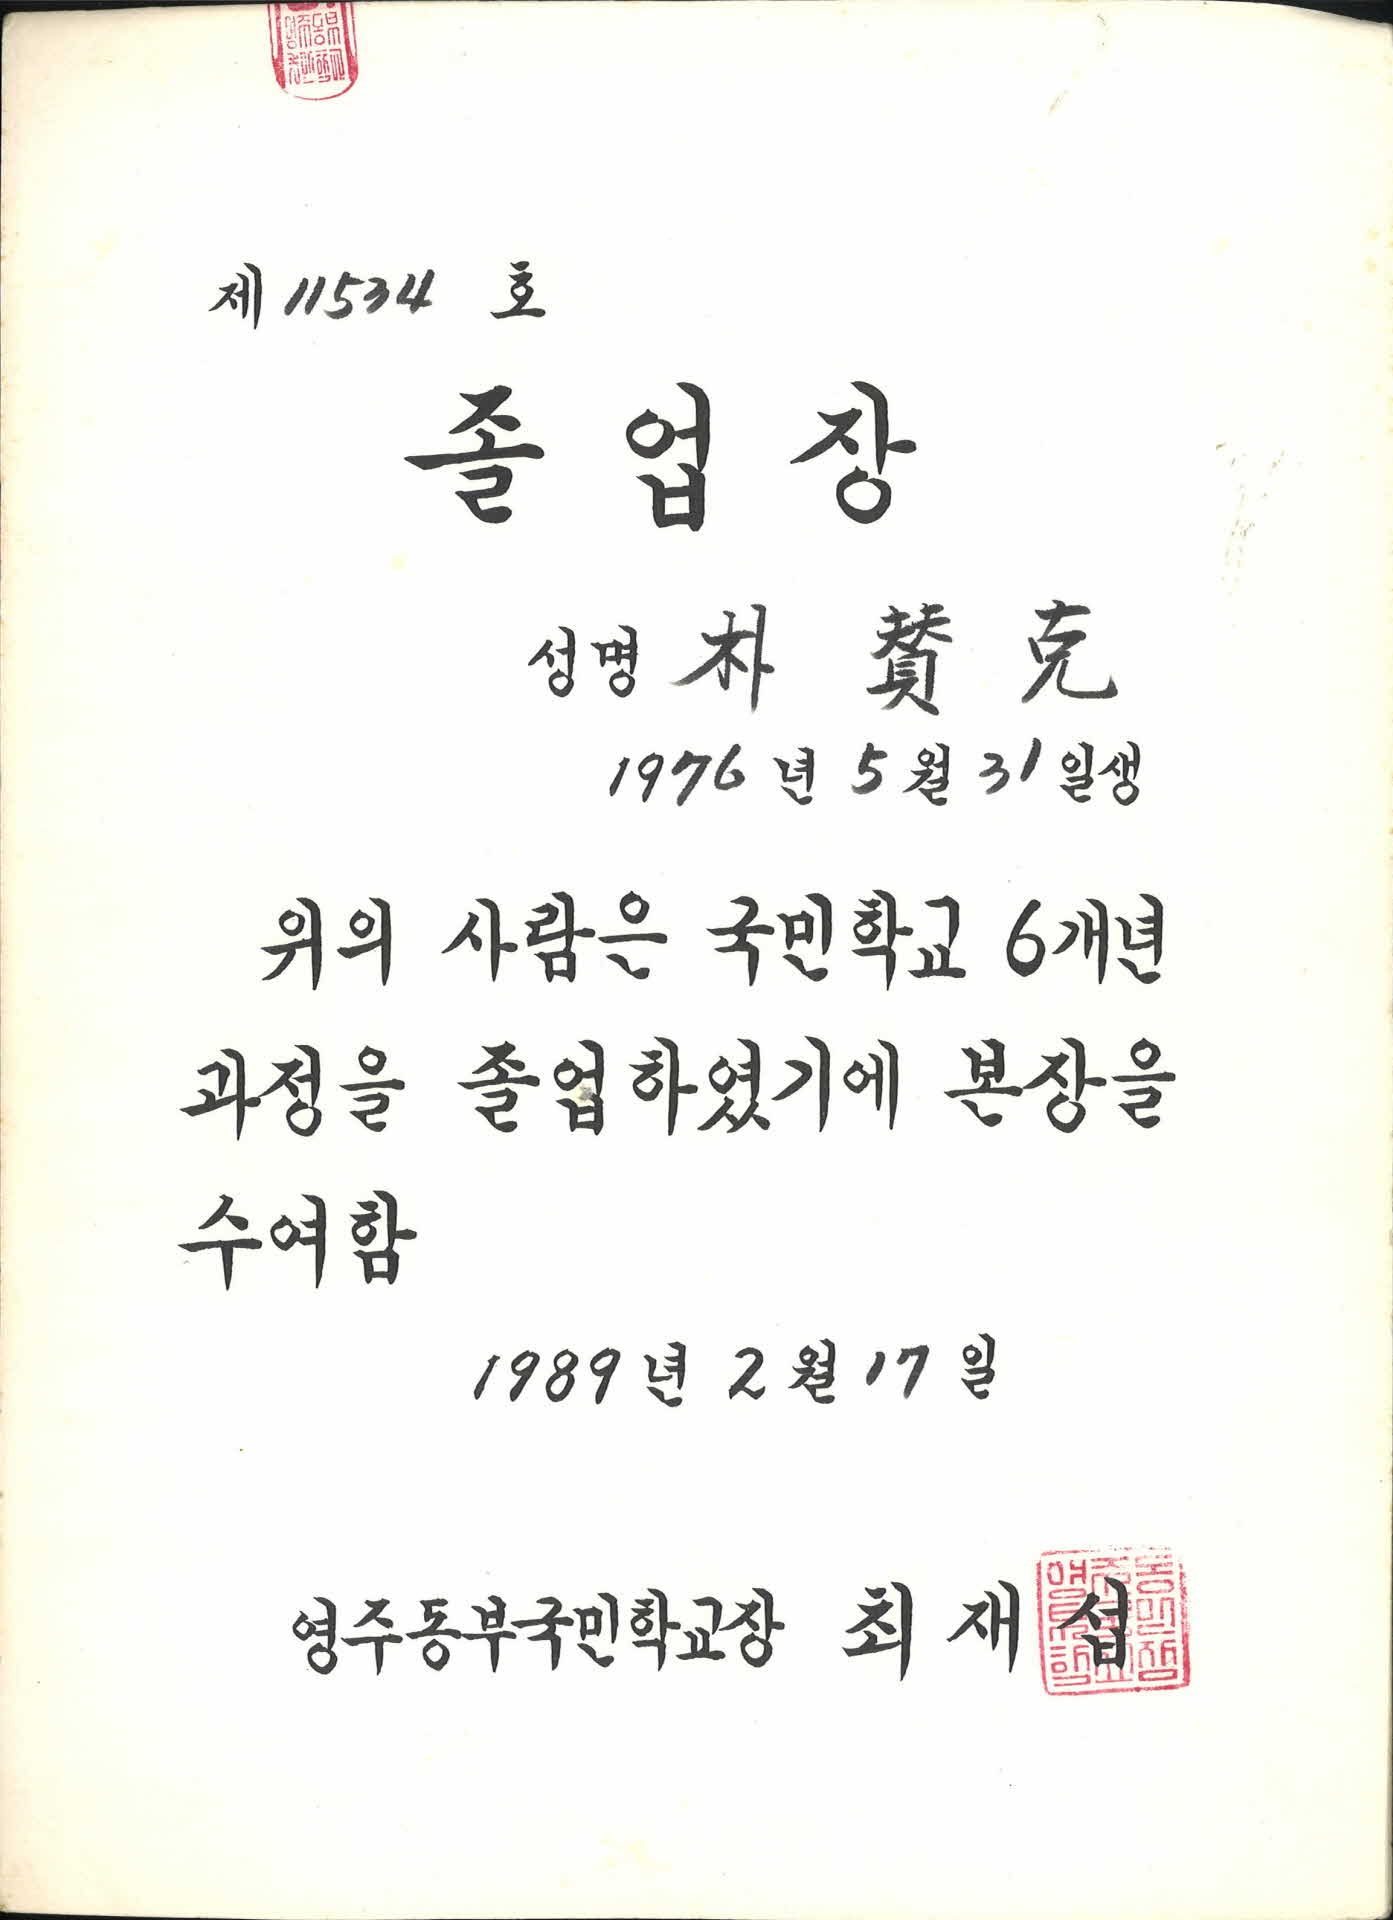 제 11534 호
졸업장
성명 朴 賛 克
1976 년 5 월 31 일생
위의 사람은 국민학교 6개년
과정을 졸업하였기에 본장을
수여함
1989 년 2 월 17 일
영주동부국민학교장 최재섭